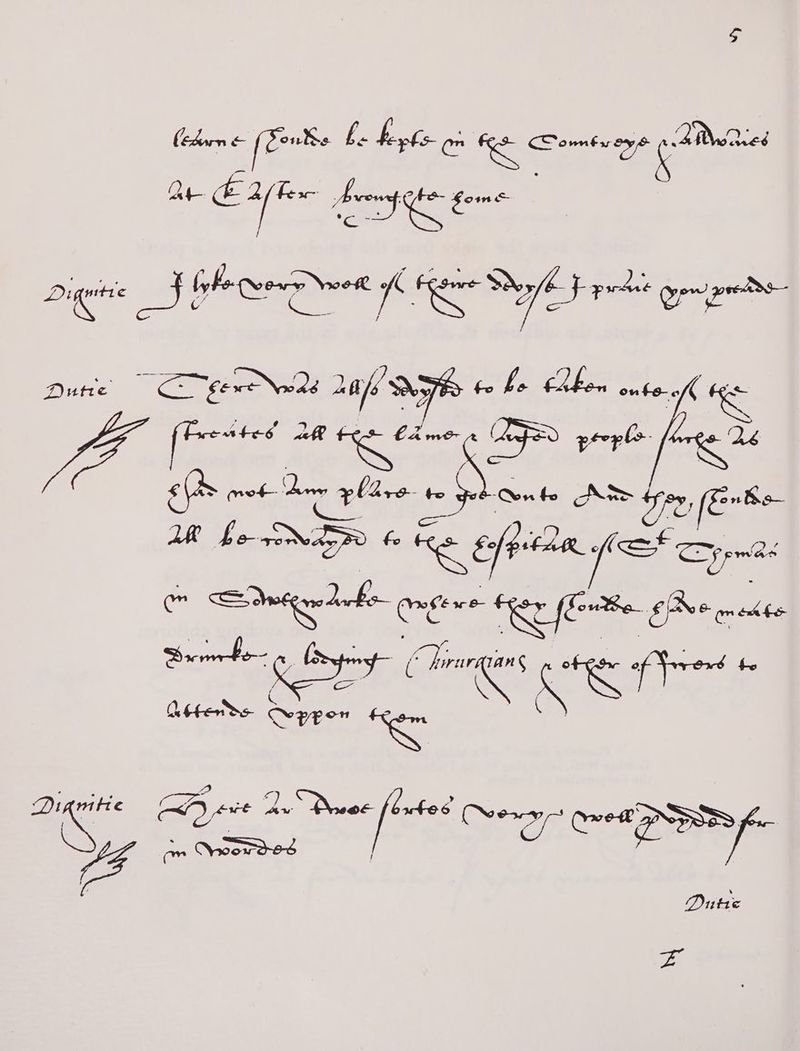 5
learne shoulde be kepte in the Countreye & Allwaies
At &  After broughte home
Dignitie I lyke very well of theire Devyse I praie you preade
Dutie There was Allso Devysed to be taken oute of the
streates All the lame & Aged people suche As
had not Any place to goe vnto And they shoulde
All be conveyed to the hospitall of St Thomas
in Sowthwarke where they shoulde have meate
Drincke & lodging Chirurgians & other officers to
Attende vppon them
Dignitie Here Ar twoe sortes very well provyded for
in woordes
Dutie